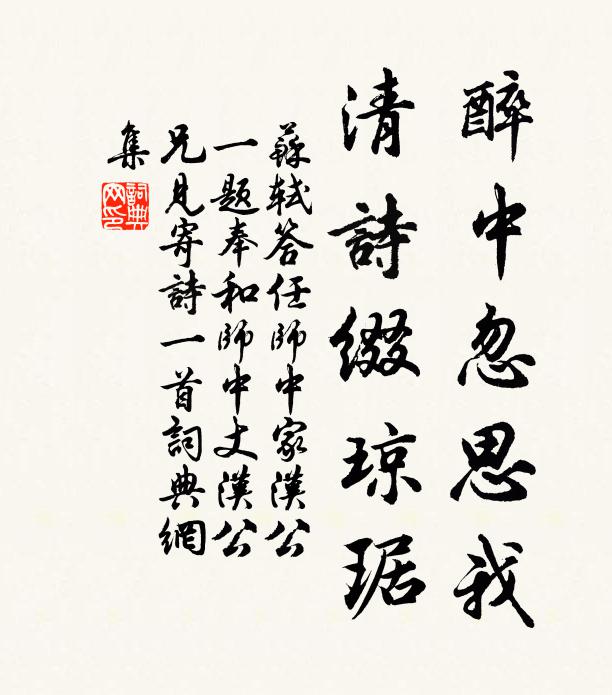 醉中忽思我
清詩綴琼琚
蘇軾答任師中家漢公
一題奉和師中丈漢公
兄見寄詩一首詞典網
集
詞典网印